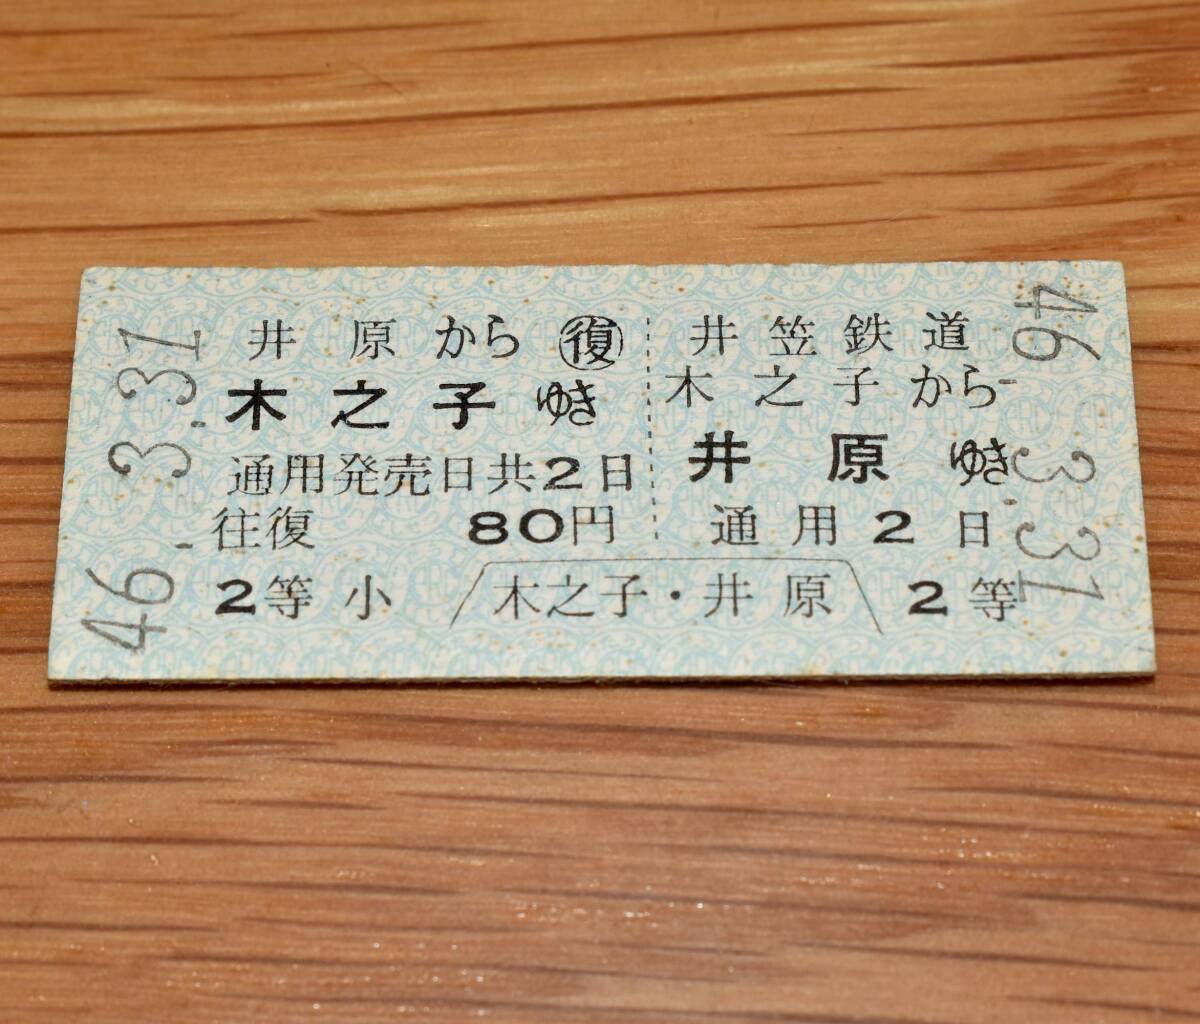 46.-3.31
井原から 復
木之子ゆき
通用発売日共2日
往復 80円
2等 小
井笠鉄道
木之子から
井原ゆき
通用2日
木之子・井原
2等
46.-3.31